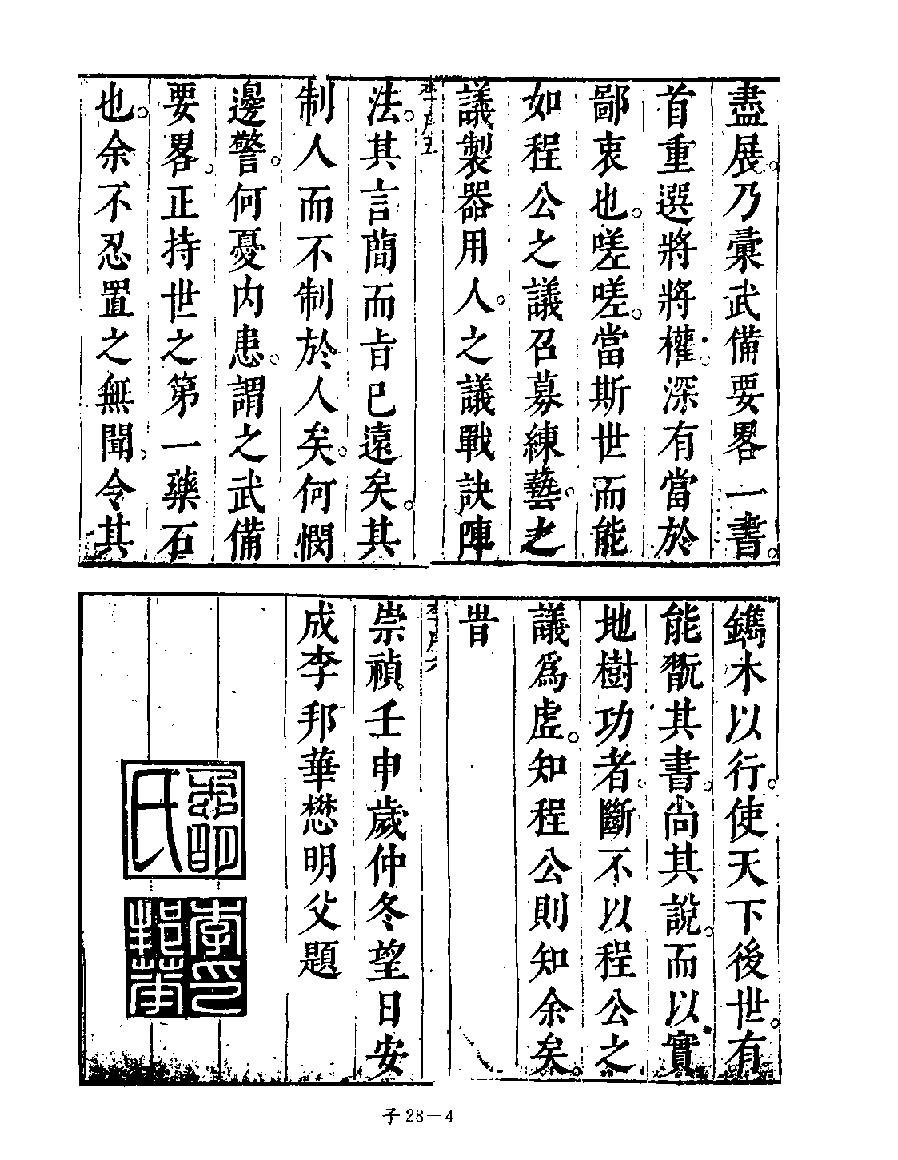 盡展。乃彙武備要畧一書。
首重選將將權。深有當於
鄙衷也。嗟嗟。當斯世而能
如程公之議召募練藝。之
議製器用人。之議戰訣陣
李序五
法。其言簡而旨已遠矣。其
制人而不制於人矣。何憫
邊警。何憂內患。謂之武備
要畧。正持世之第一藥石
也。余不忍置之無聞。令其
鐫木以行。使天下後世。有
能翫其書。尚其說。而以實
地樹功者。斷不以程公之
議爲虛。知程公則知余矣。
昔
李序六
崇禎壬申歲仲冬望日安
成李邦華懋明父題
懋明氏
李邦華印
子28-4